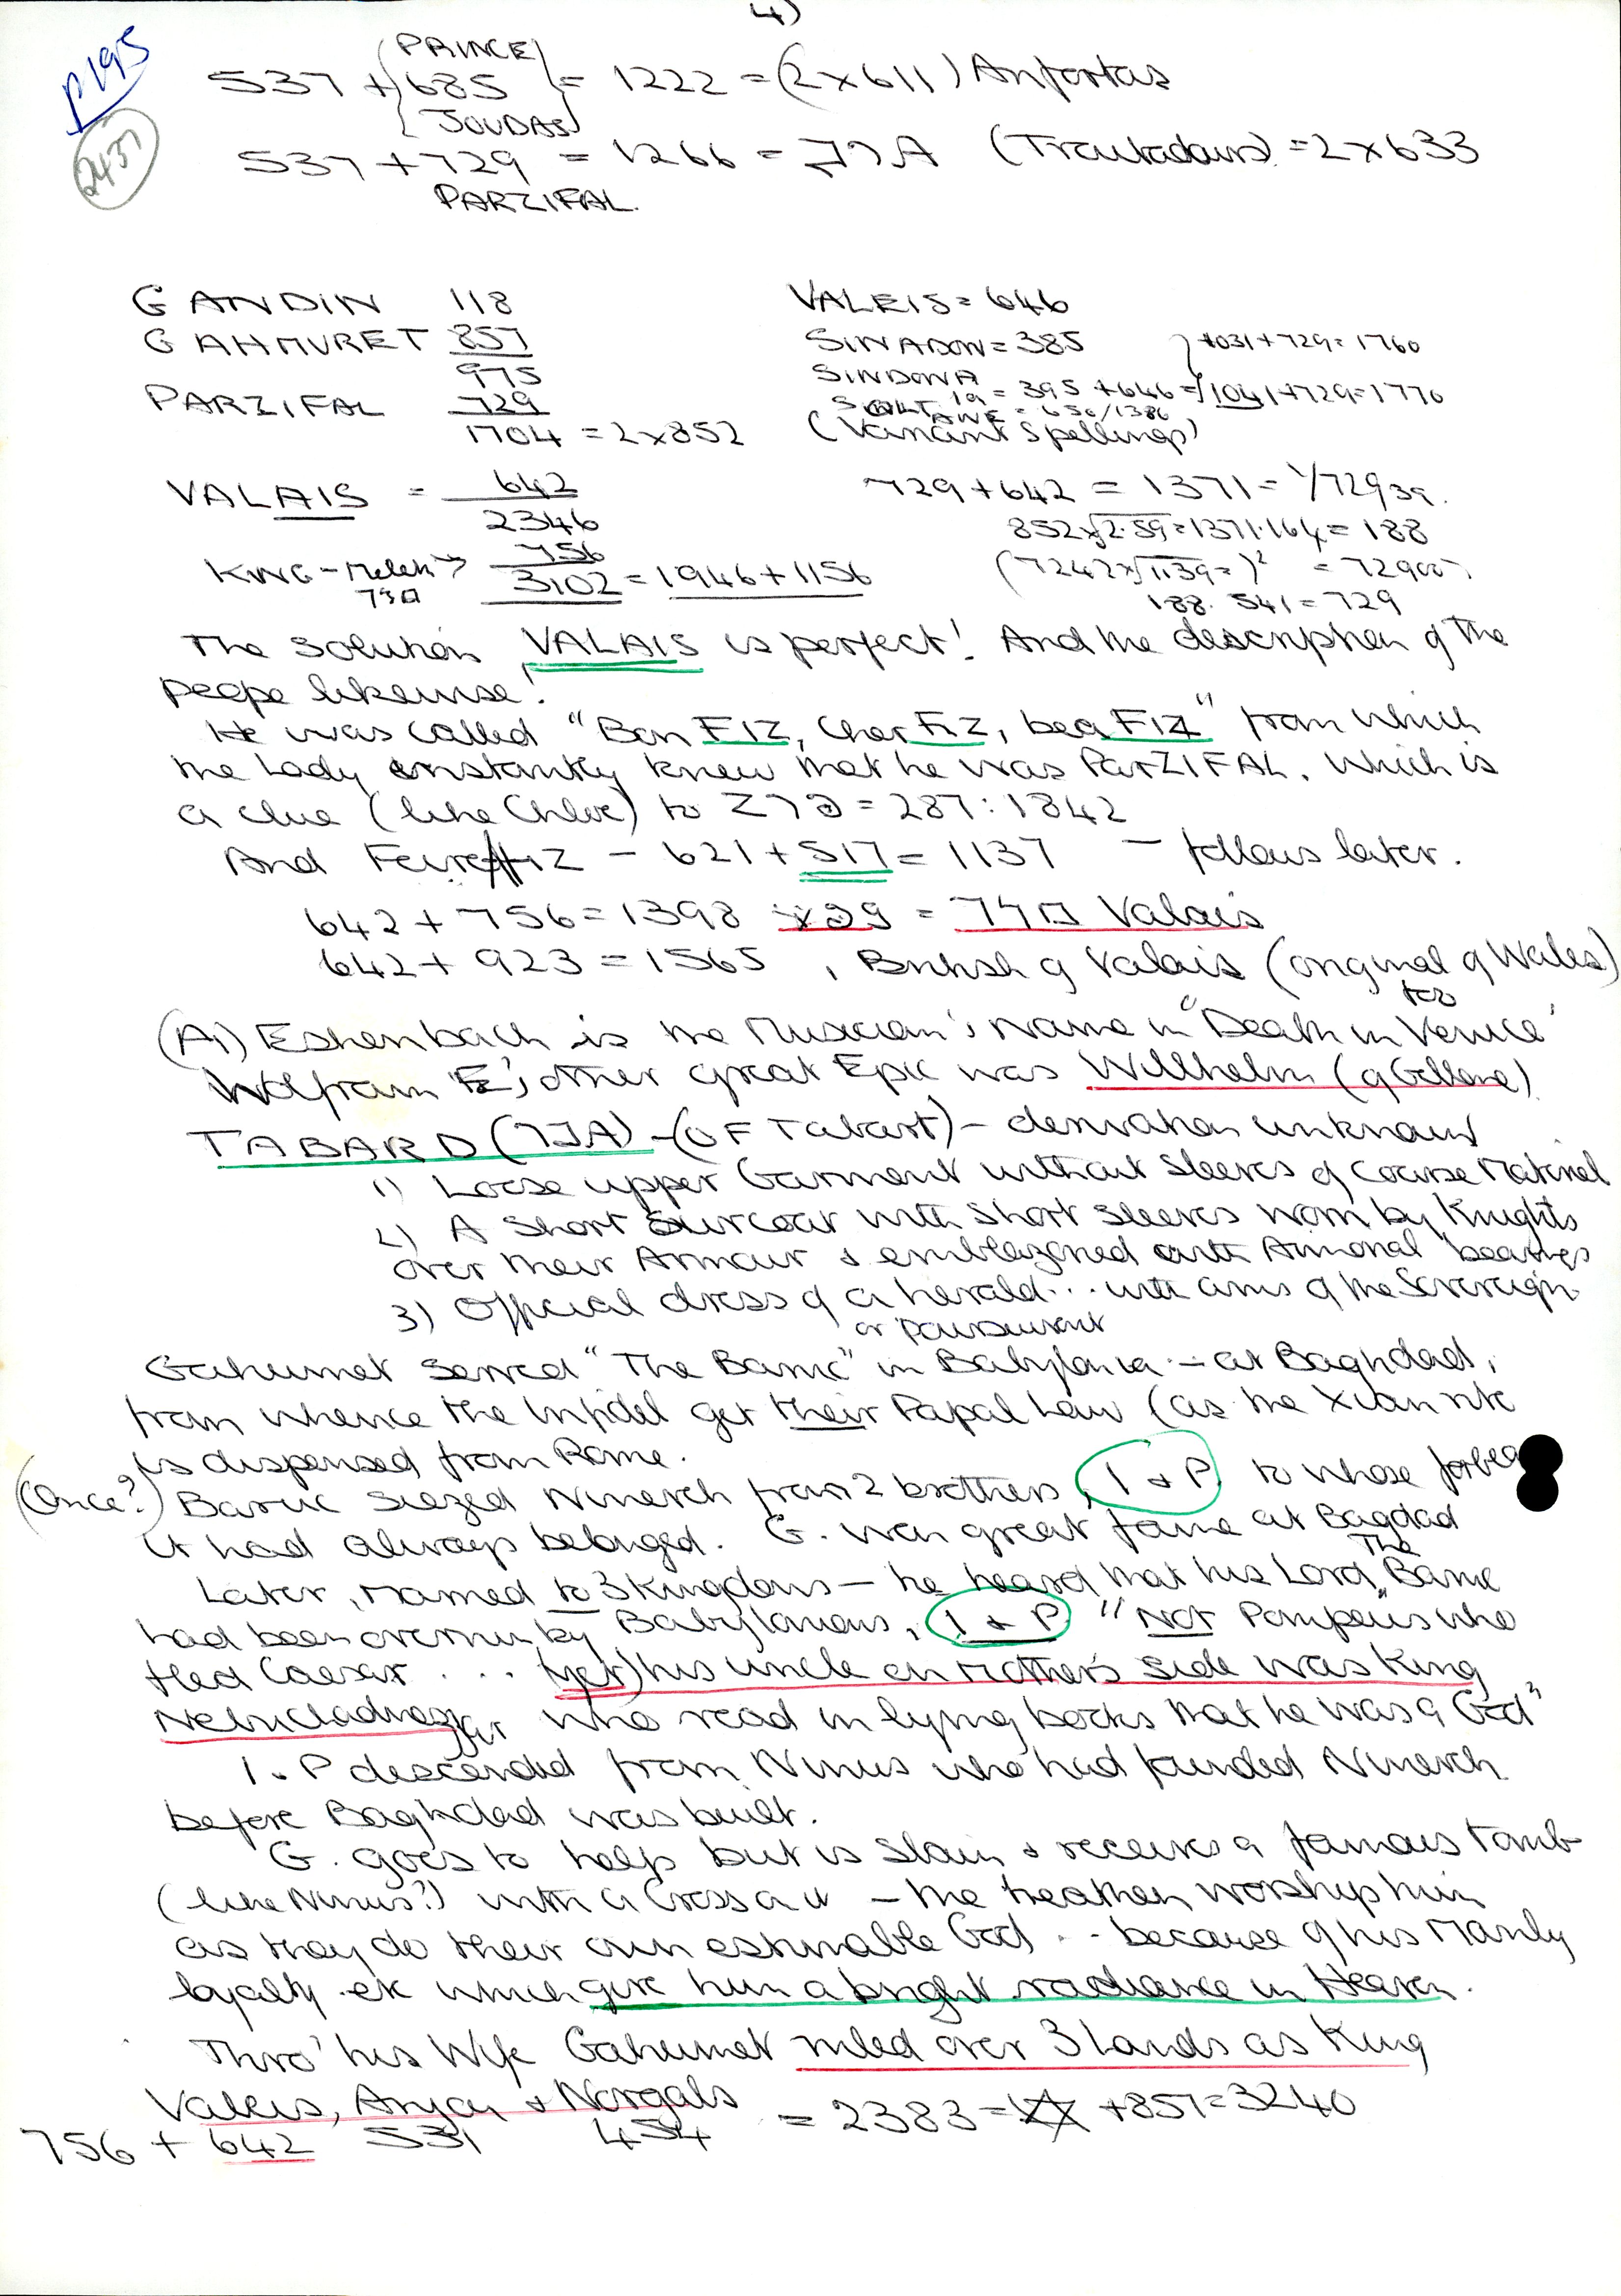 4)
P195
2437
(PRINCE)
537 + 685 = 1222 = (2x611) Anfortas
JOUDAS
537 + 729 = 1266 = (Troubadours) = 2x633
PARZIFAL.
GANDIN 118
GAHMVRET 857
975
PARZIFAL 729
1704 = 2x852
VALAIS = 642
2346
KING - Melek → 756
3102 = 1946 + 1156
VALEIS = 646
SINADON = 385 } 1031 + 729 = 1760
SINDONA = 395 + 646 = 1041 + 729 = 1770
(Variant Spellings)
729 + 642 = 1371 =
188. 541 = 729
The solution VALAIS is perfect! And the description of the
peope likewise!
He was called "Bon FIZ, Cher FIZ, bea FIZ" from which
the Lady instantly knew that he was ParZIFAL. Which is
a clue (like Chloe) to = 287 : 1842
And FeirefFIZ - 621 + 517 = 1137 - follows later.
642 + 756 = 1398 = Valais
642 + 923 = 1565, British of Valais (original of Wales)
too
(A) Eshenbach is the Musician's Name in "Death in Venice'
Wolfram 'E's other great Epic was Willhelm (of Gellone)
TABARD - (OF Tabart) - derivation unknown
1) Loose upper Garment without sleeves of coarse Material
2) A short surcoat with short sleeves worn by Knights
over their Armour & emblazoned with Armorial bearings
3) Official dress of a herald... with arms of the Sovereign.
or poursuivant
Gahumet served "The Baruc" in Babylonia - at Baghdad,
from whence the Infidel get their Papal Law (as the Xian rite
is dispensed from Rome.
(Once?) Baruc siezed Nineveh from 2 brothers, I & P, to whose
it had always belonged. G. won great fame at Bagdad
Later, named to 3 Kingdoms - he heard that his Lord, "The Baruc
had been overrun by Babylonians, I & P "Not Pompeius who
fled Caesar ... (yet) his uncle on Mother's side was King
Nebuchadnezzar, who read in lying books that he was a God"
I & P descended from Ninus who had founded Nineveh
before Baghdad was built.
G. goes to help but is slain & receives a famous tomb
(like Ninus?) with a Cross on it - the heathen worship him
as they do their own estimable God .. because of his Manly
loyalty etc which give him a bright radiance in Heaven.
Thro' his Wife Gahumet ruled over 3 lands as King
Valeis, Anjou & Norgals
756 + 642 531 454 = 2383 = + 857 = 3240